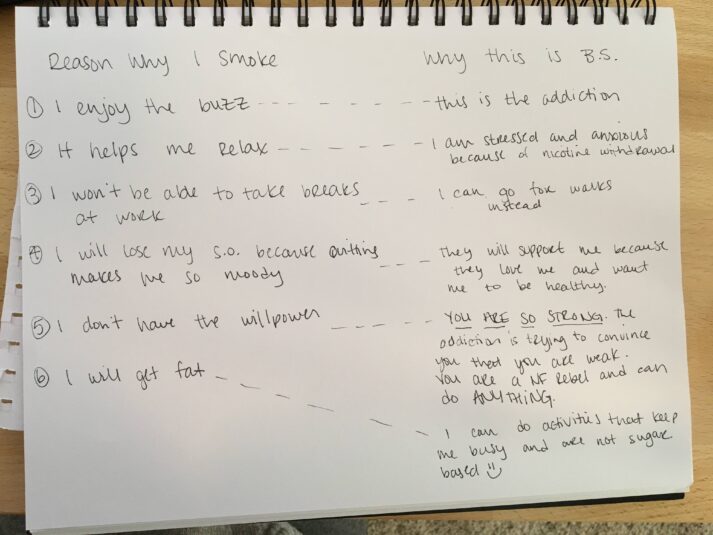 Reason Why I Smoke
Why this is B.S.
① I enjoy the buzz
this is the addiction
② It helps me relax
I am stressed and anxious
because of nicotine withdrawal
③ I won't be able to take breaks
at work
I can go for walks
instead
④ I will lose my s.o. because quitting
makes me so moody
They will support me because
they love me and want
me to be healthy.
⑤ I don't have the willpower
YOU ARE SO STRONG. The
addiction is trying to convince
you that you are weak.
You are a NF Rebel and can
do ANYTHING.
⑥ I will get fat
I can do activities that keep
me busy and are not sugar
based